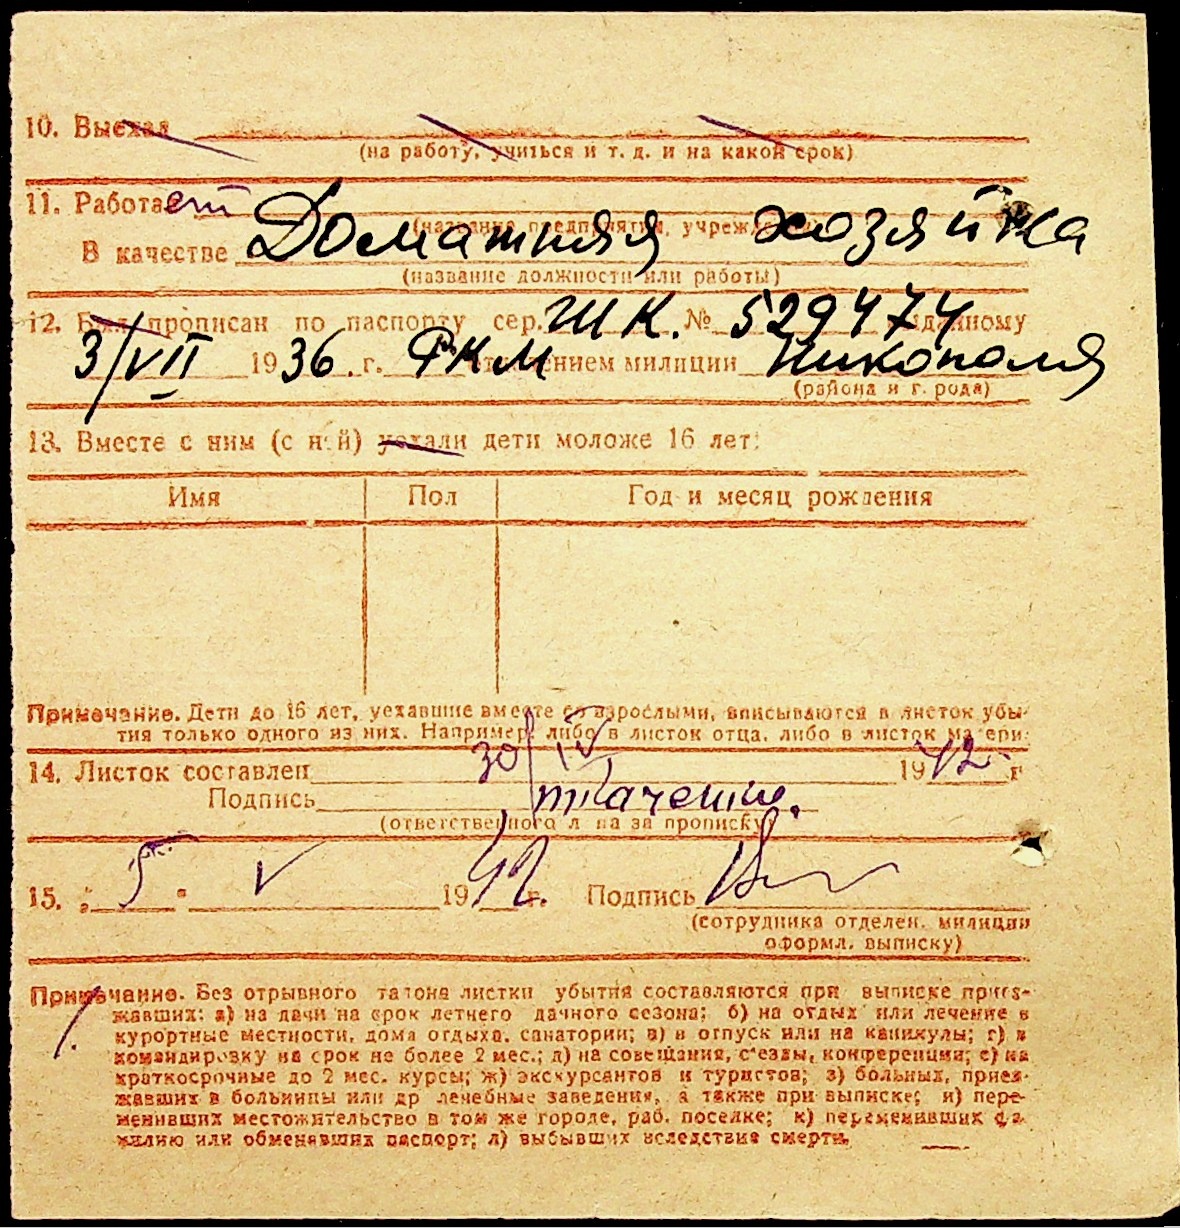 10. Выехал
(на работу, учиться и т. д. и на какой срок)
11. Работает
(название предприятия, учреждения)
В качестве Домашняя хозяйка
(название должности или работы)
12. Был прописан по паспорту сер. ШК. № 529474 выданному
3/VII 1936. г. РКМ отделением милиции Никополя
(района и города)
13. Вместе с ним (с ней) уехали дети моложе 16 лет:
Имя Пол Год и месяц рождения
Примечание. Дети до 16 лет, уехавшие вместе со взрослыми, вписываются в листок убы-
тия только одного из них. Например либо в листок отца, либо в листок матери.
14. Листок составлен 30/IV 1942 г.
Подпись
(ответственного лица за прописку)
15. "5" V 1942 г. Подпись
(сотрудника отделен. милиции
оформл. выписку)
Примечание. Без отрывного талона листки убытия составляются при выписке приез-
жавших: а) на дачи на срок летнего дачного сезона; б) на отдых или лечение в
курортные местности, дома отдыха, санатории; в) в отпуск или на каникулы; г) в
командировку на срок не более 2 мес.; д) на совещания, с'езды, конференции; е) на
краткосрочные до 2 мес. курсы; ж) экскурсантов и туристов; з) больных, приез-
жавших в больницы или др лечебные заведения, а также при выписке; и) пере-
менивших местожительство в том же городе, раб. поселке; к) переменивших фа-
милию или обменявших паспорт; л) выбывших вследствие смерти.